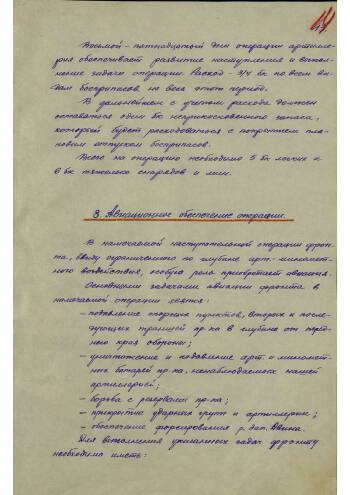 14
Восьмой - пятнадцатый дни операции артилле-
рия обеспечивает развитие наступления и выпол-
нение задачи операции. Расход - 3/4 бк по всем ви-
дам боеприпасов, на весь этот период.
В дальнейшем с учетом расхода должен
оставаться один бк неприкосновенного запаса,
который будет расходоваться с покрытием пла-
новым отпуском боеприпасов.
Всего на операцию необходимо 5 бк легких и
6 бк тяжелых снарядов и мин.
3. Авиационное обеспечение операции.
В намечаемой наступательной операции фрон-
та, ввиду ограниченного по глубине арт.-минамет-
ного воздействия, особую роль приобретает авиация.
Основными задачами авиации фронта в
намечаемой операции явятся:
- подавление опорных пунктов, вторых и после-
дующих траншей пр-ка в глубине от перед-
него края обороны;
- уничтожение и подавление арт. и минамет-
ных батарей пр-ка, ненаблюдаемых нашей
артиллерией;
- борьба с резервами пр-ка;
- прикрытие ударных групп и артиллерии;
- обеспечение форсирования р. Зап. Двина.
Для выполнения указанных задач фронту
необходимо иметь: